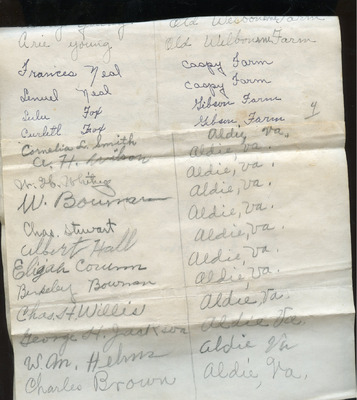 Young Old Welbourn Farm
Arie Young Old Welbourn Farm
Frances Neal Caspy Farm
Lemuel Neal Caspy Farm
Lulu Fox Gibson Farm
Curleth Fox Gibson Farm 4
Cornelia D. Smith Aldie, Va.
A. H. Wilson Aldie, Va.
W. H. Whiting Aldie, Va.
W. Bowman Aldie, Va.
Chas. Stewart Aldie, Va.
Albert Hall Aldie, Va.
Elijah Aldie, Va.
Berkeley Bowman Aldie, Va.
Chas. H Willis Aldie, Va.
George H. Jackson Aldie Va.
W. M. Helms Aldie Va
Charles Brown Aldie, Va.